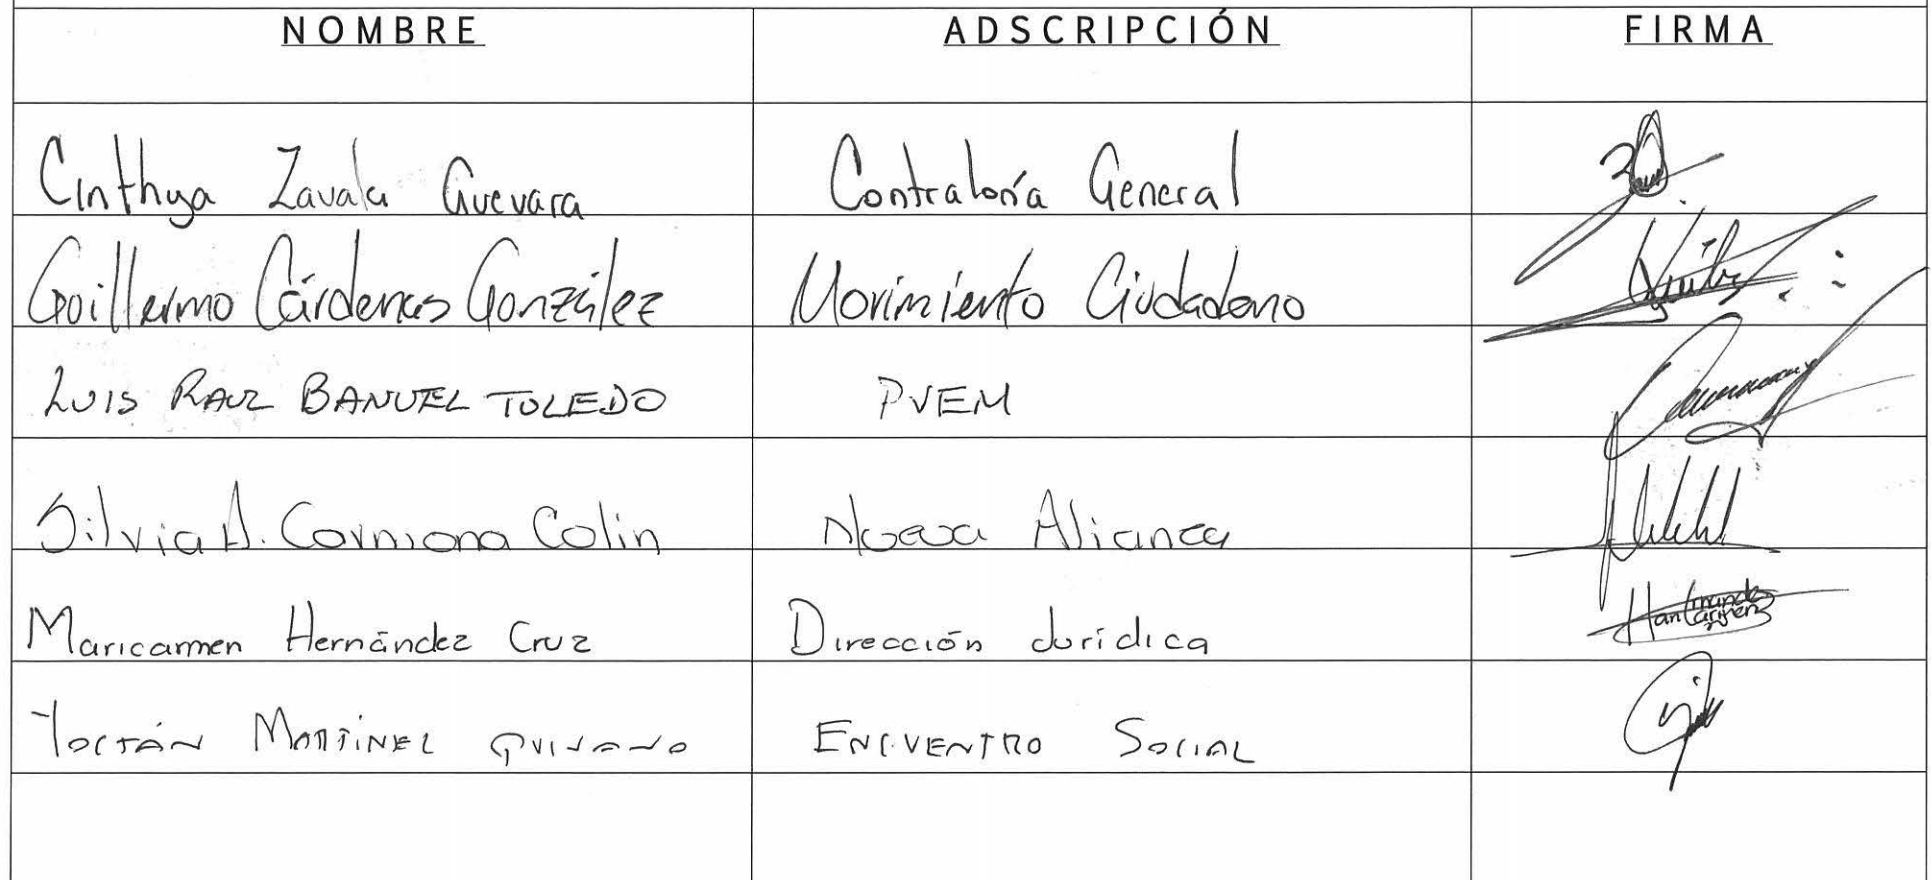 NOMBRE ADSCRIPCIÓN FIRMA
Cinthya Zavala Guevara Contraloría General
Guillermo Cárdenas González Movimiento Ciudadano
LUIS RAUL BANUEL TOLEDO PVEM
Silvia A. Carmona Colin Nueva Alianza
Maricarmen Hernández Cruz Dirección Jurídica
YOCTÁN MARTÍNEZ QUIJANO ENCUENTRO SOCIAL